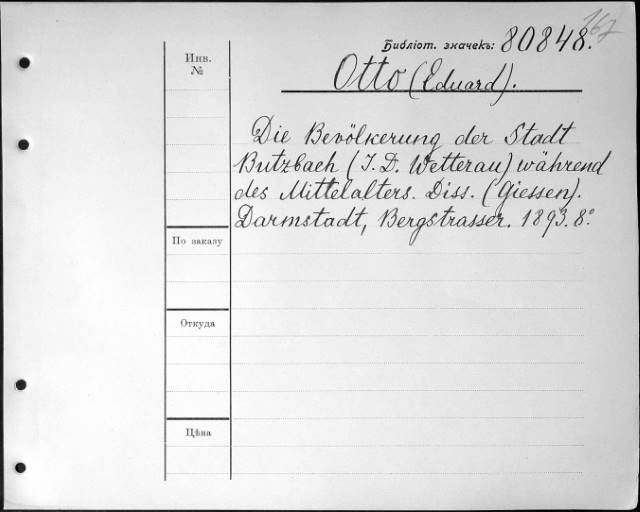 167
Библіот. значекъ: 80848.
Инв.
№
Otto (Eduard).
Die Bevölkerung der Stadt
Butzbach (I. D. Wetterau) während
des Mittelalters. Diss. (Giessen).
Darmstadt, Bergstrasser. 1893. 8°
По заказу
Откуда
Цѣна